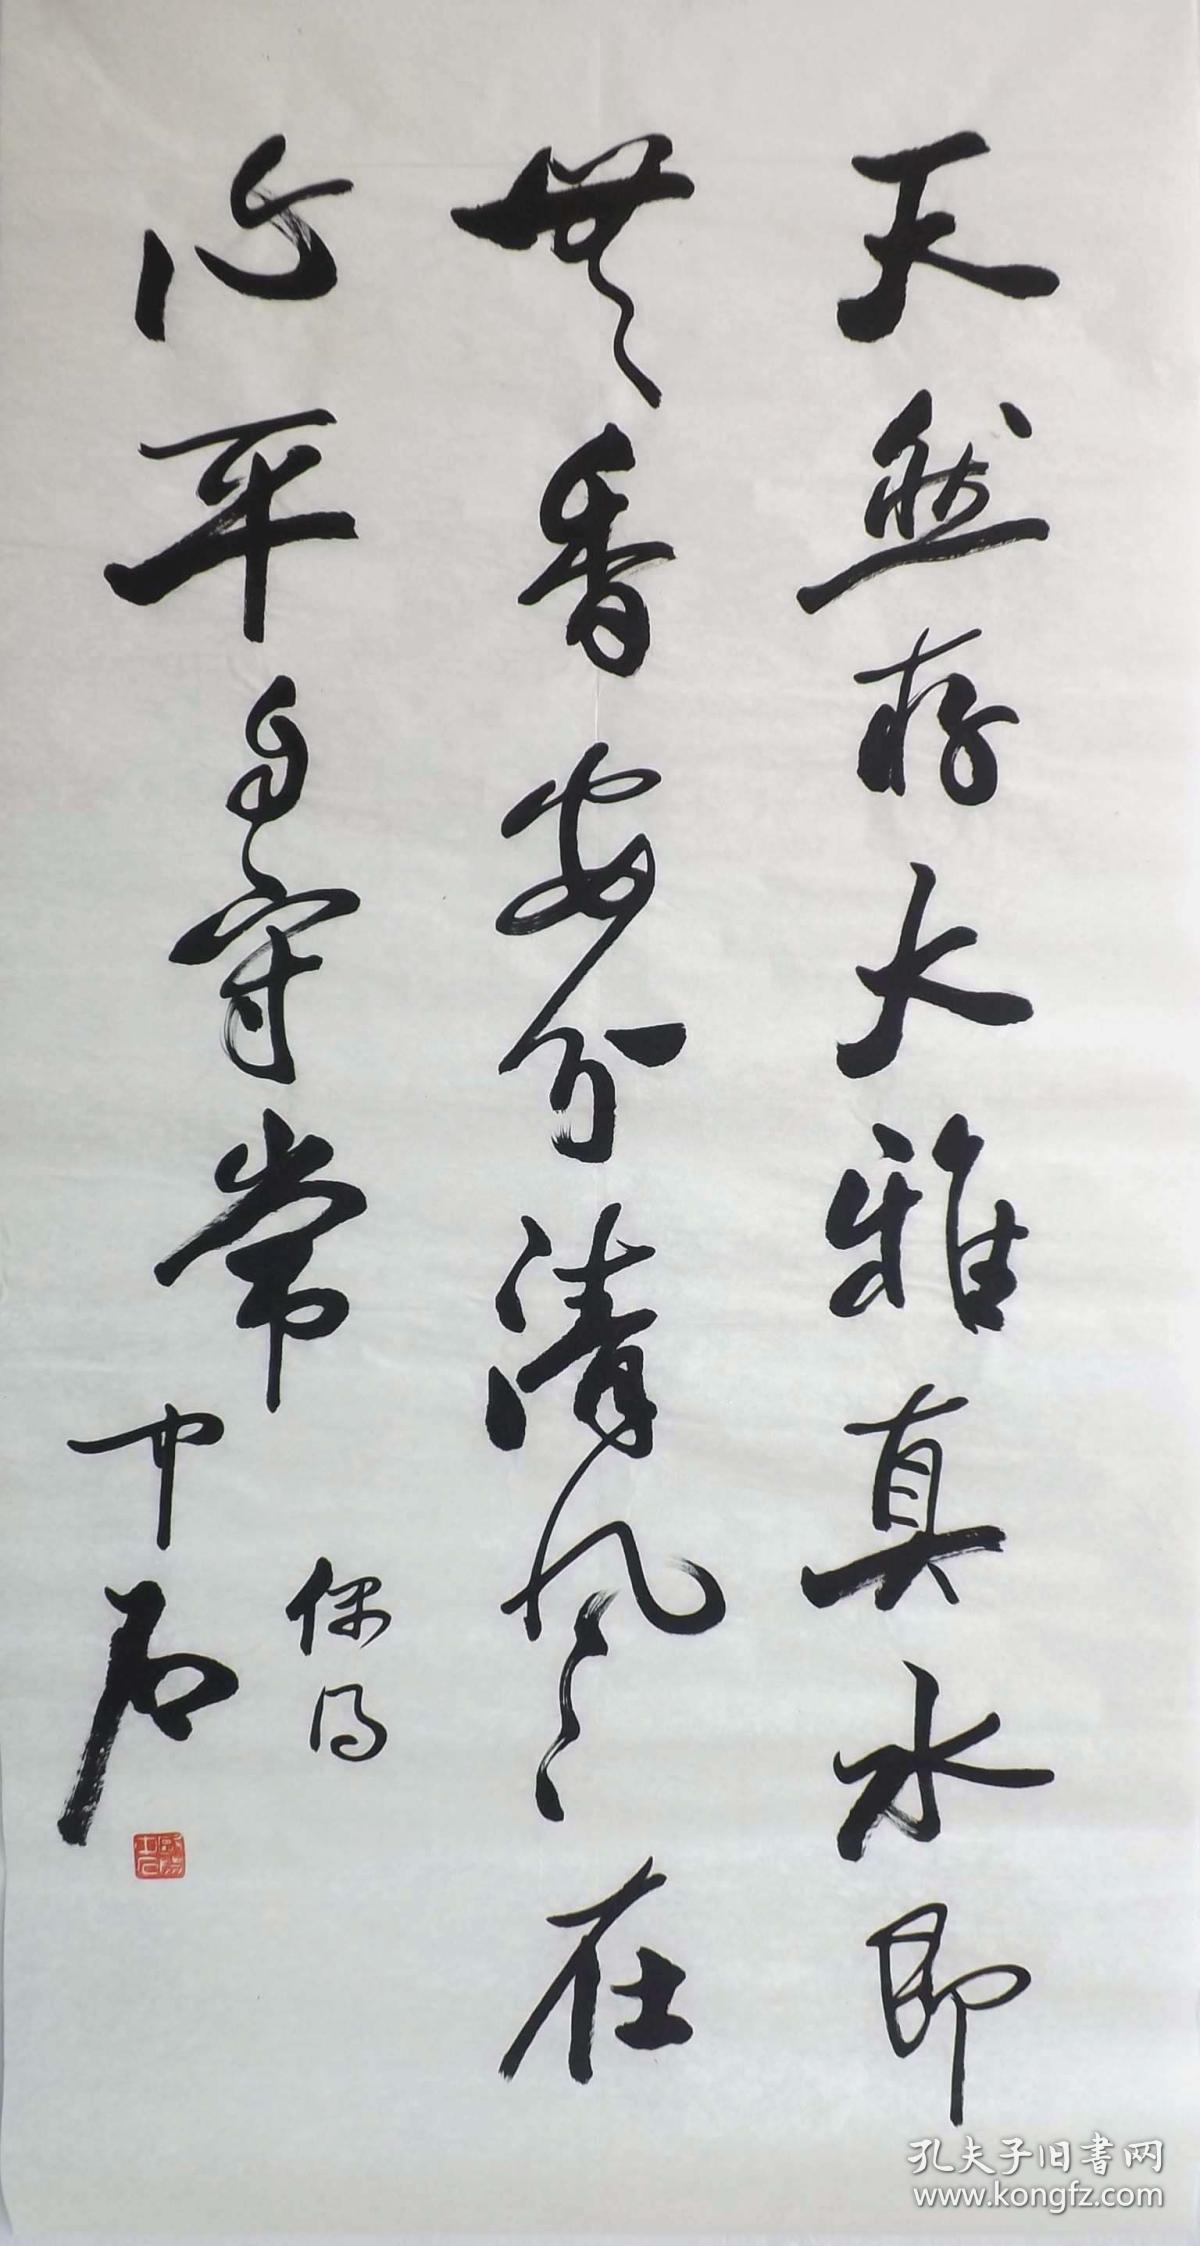 天然存大雅真水即
無香安分清风在
心平自守常
偶得
中石
孔夫子旧书网
www.kongfz.com